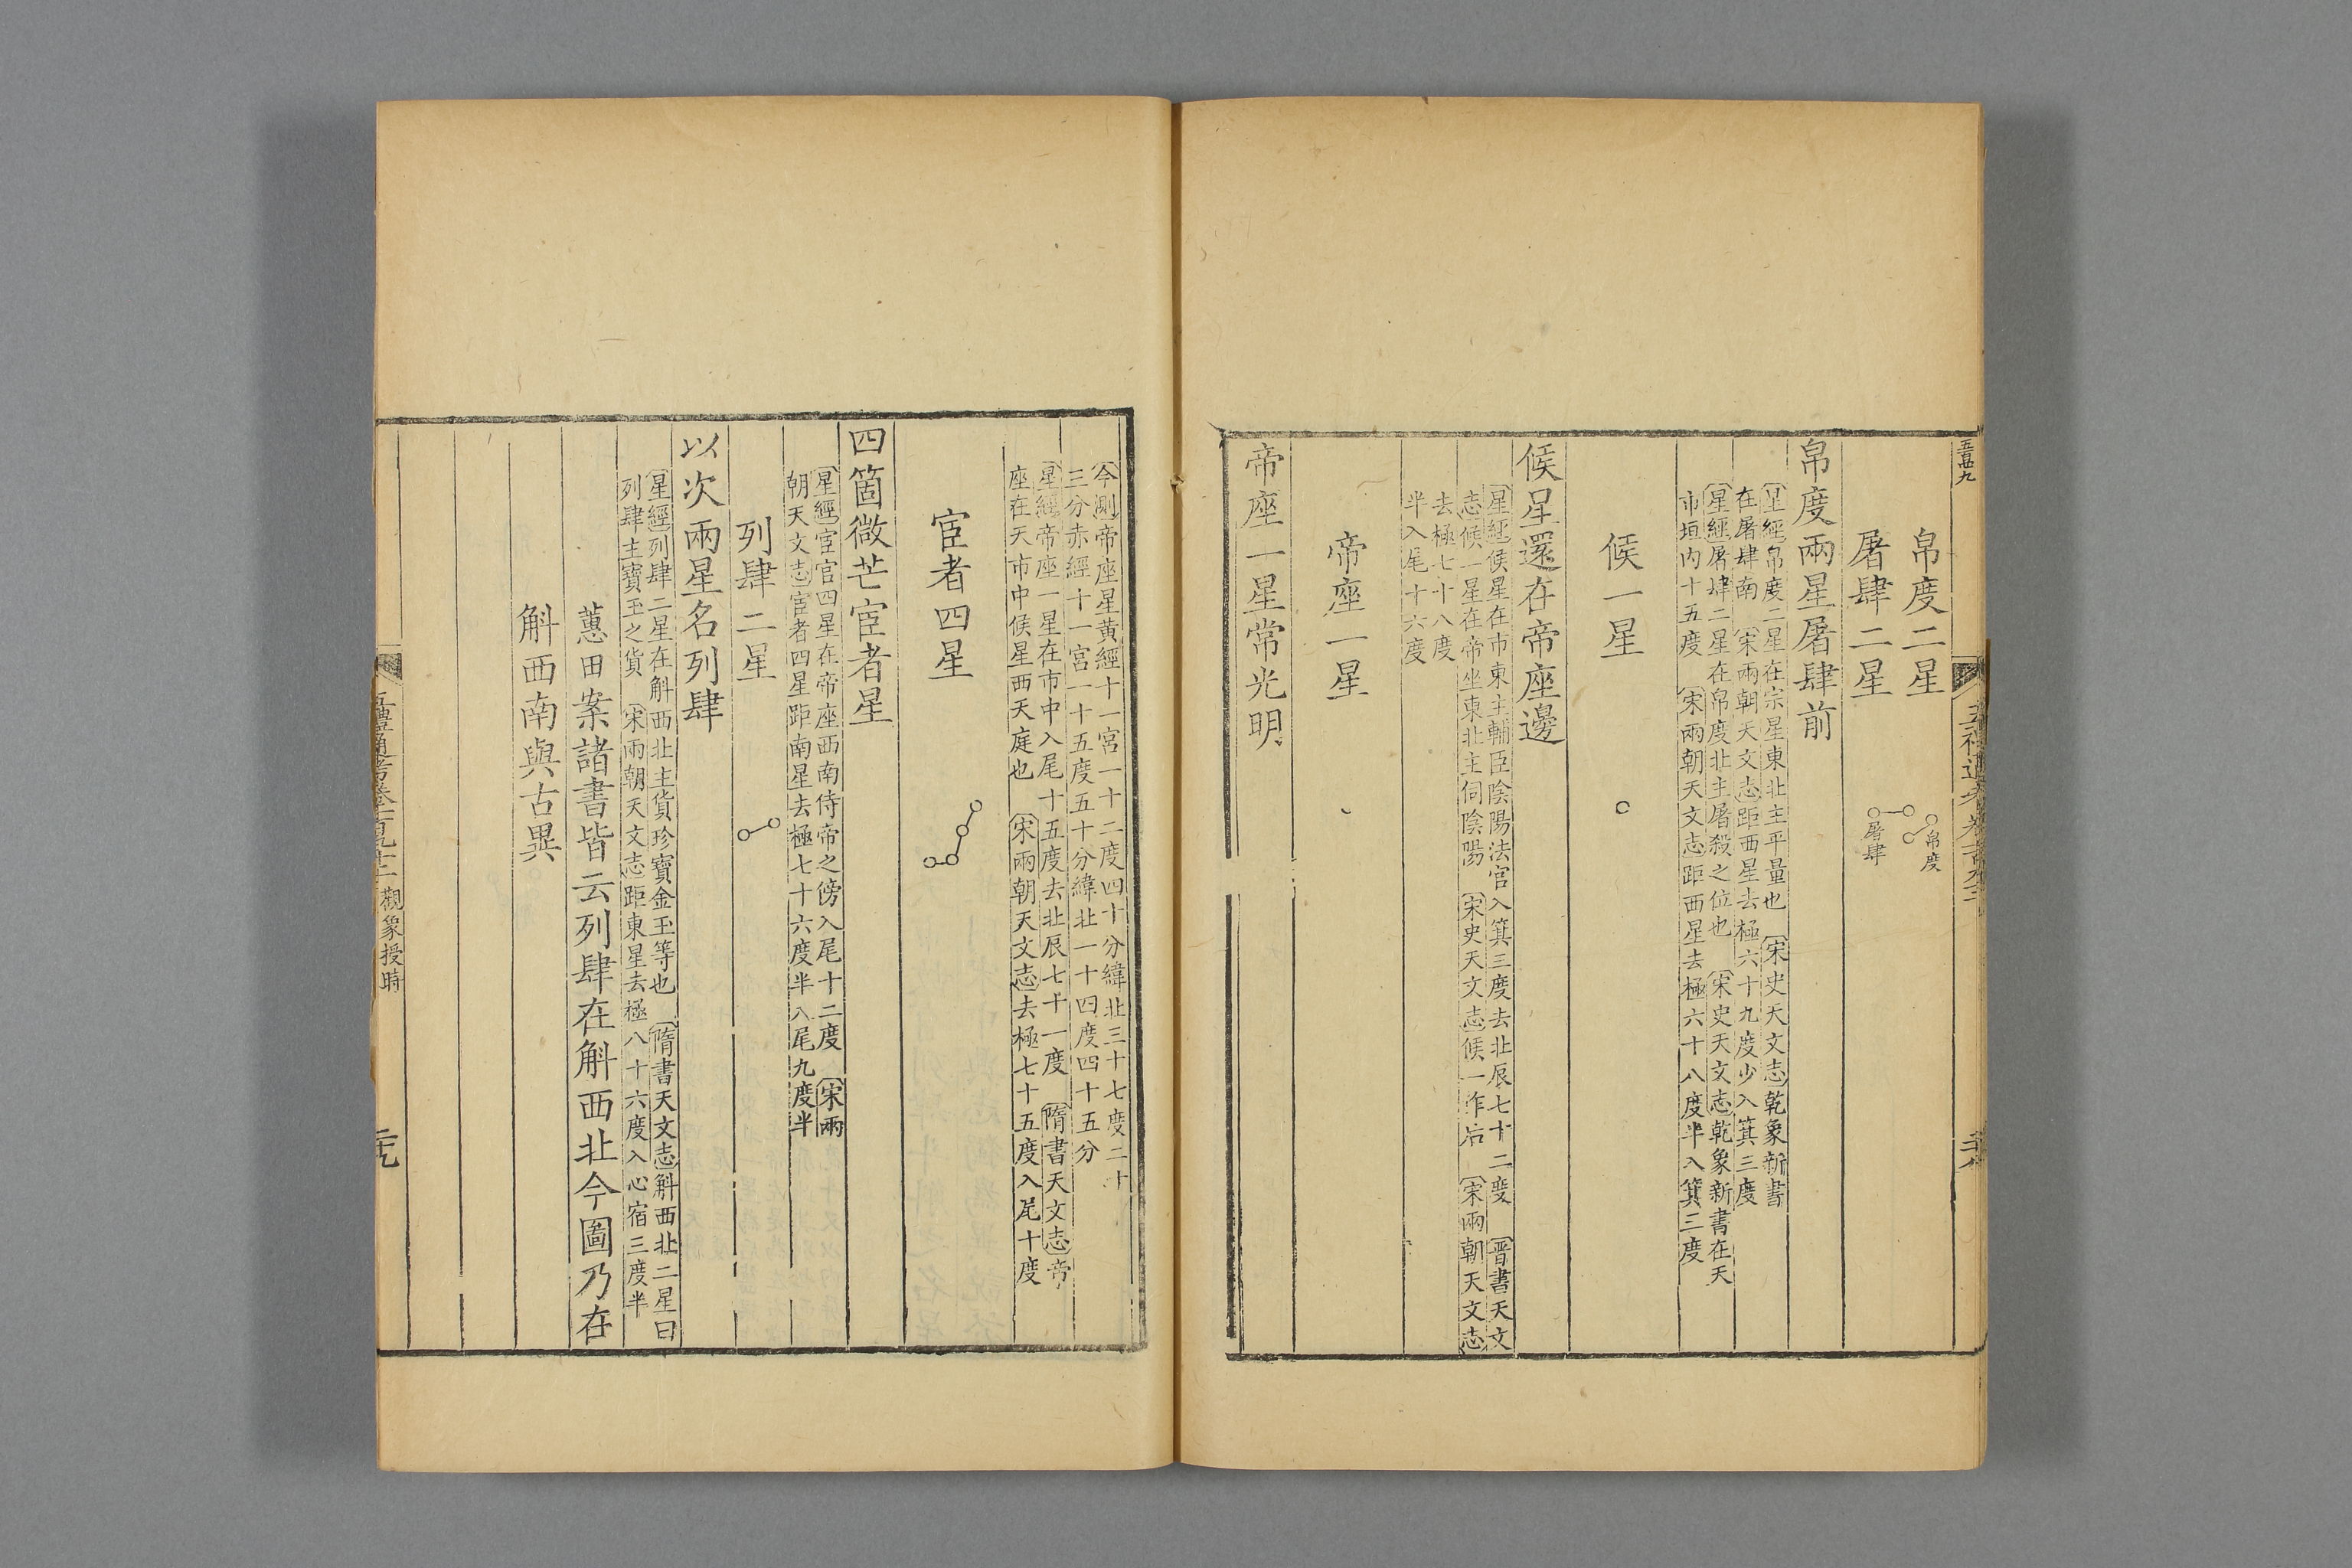 帛度二星
屠肆二星
帛度
屠肆
帛度兩星屠肆前
星經帛度二星在宗星東北主平量也 宋史天文志乾象新書
在屠肆南 宋兩朝天文志距西星去極六十九度少入箕三度
星經屠肆二星在帛度北主屠殺之位也 宋史天文志乾象新書在天
市垣内十五度 宋兩朝天文志距西星去極六十八度半入箕三度
候一星
候星還在帝座邊
星經候星在市東主輔臣陰陽法官入箕三度去北辰七十二度 晋書天文
志候一星在帝坐東北主伺陰陽 宋史天文志候一作后 宋兩朝天文志
去極七十八度
半入尾十六度
帝座一星
帝座一星常光明
今測帝座星黃經十一宮一十二度四十分緯北三十七度二十
三分赤經十一宮一十五度五十分緯北一十四度四十五分
星經帝座一星在市中入尾十五度去北辰七十一度 隋書天文志帝
座在天市中候星西天庭也 宋兩朝天文志去極七十五度入尾十度
宦者四星
四箇微芒宦者星
星經宦官四星在帝座西南侍帝之傍入尾十二度 宋兩
朝天文志宦者四星距南星去極七十六度半入尾九度半
列肆二星
以次兩星名列肆
星經列肆二星在斛西北主貨珍寶金玉等也 隋書天文志斛西北二星曰
列肆主寶玉之貨 宋兩朝天文志距東星去極八十六度入心宿三度半
蕙田案諸書皆云列肆在斛西北今圖乃在
斛西南與古異
五禮通考卷一百九十二 觀象授時
二十九